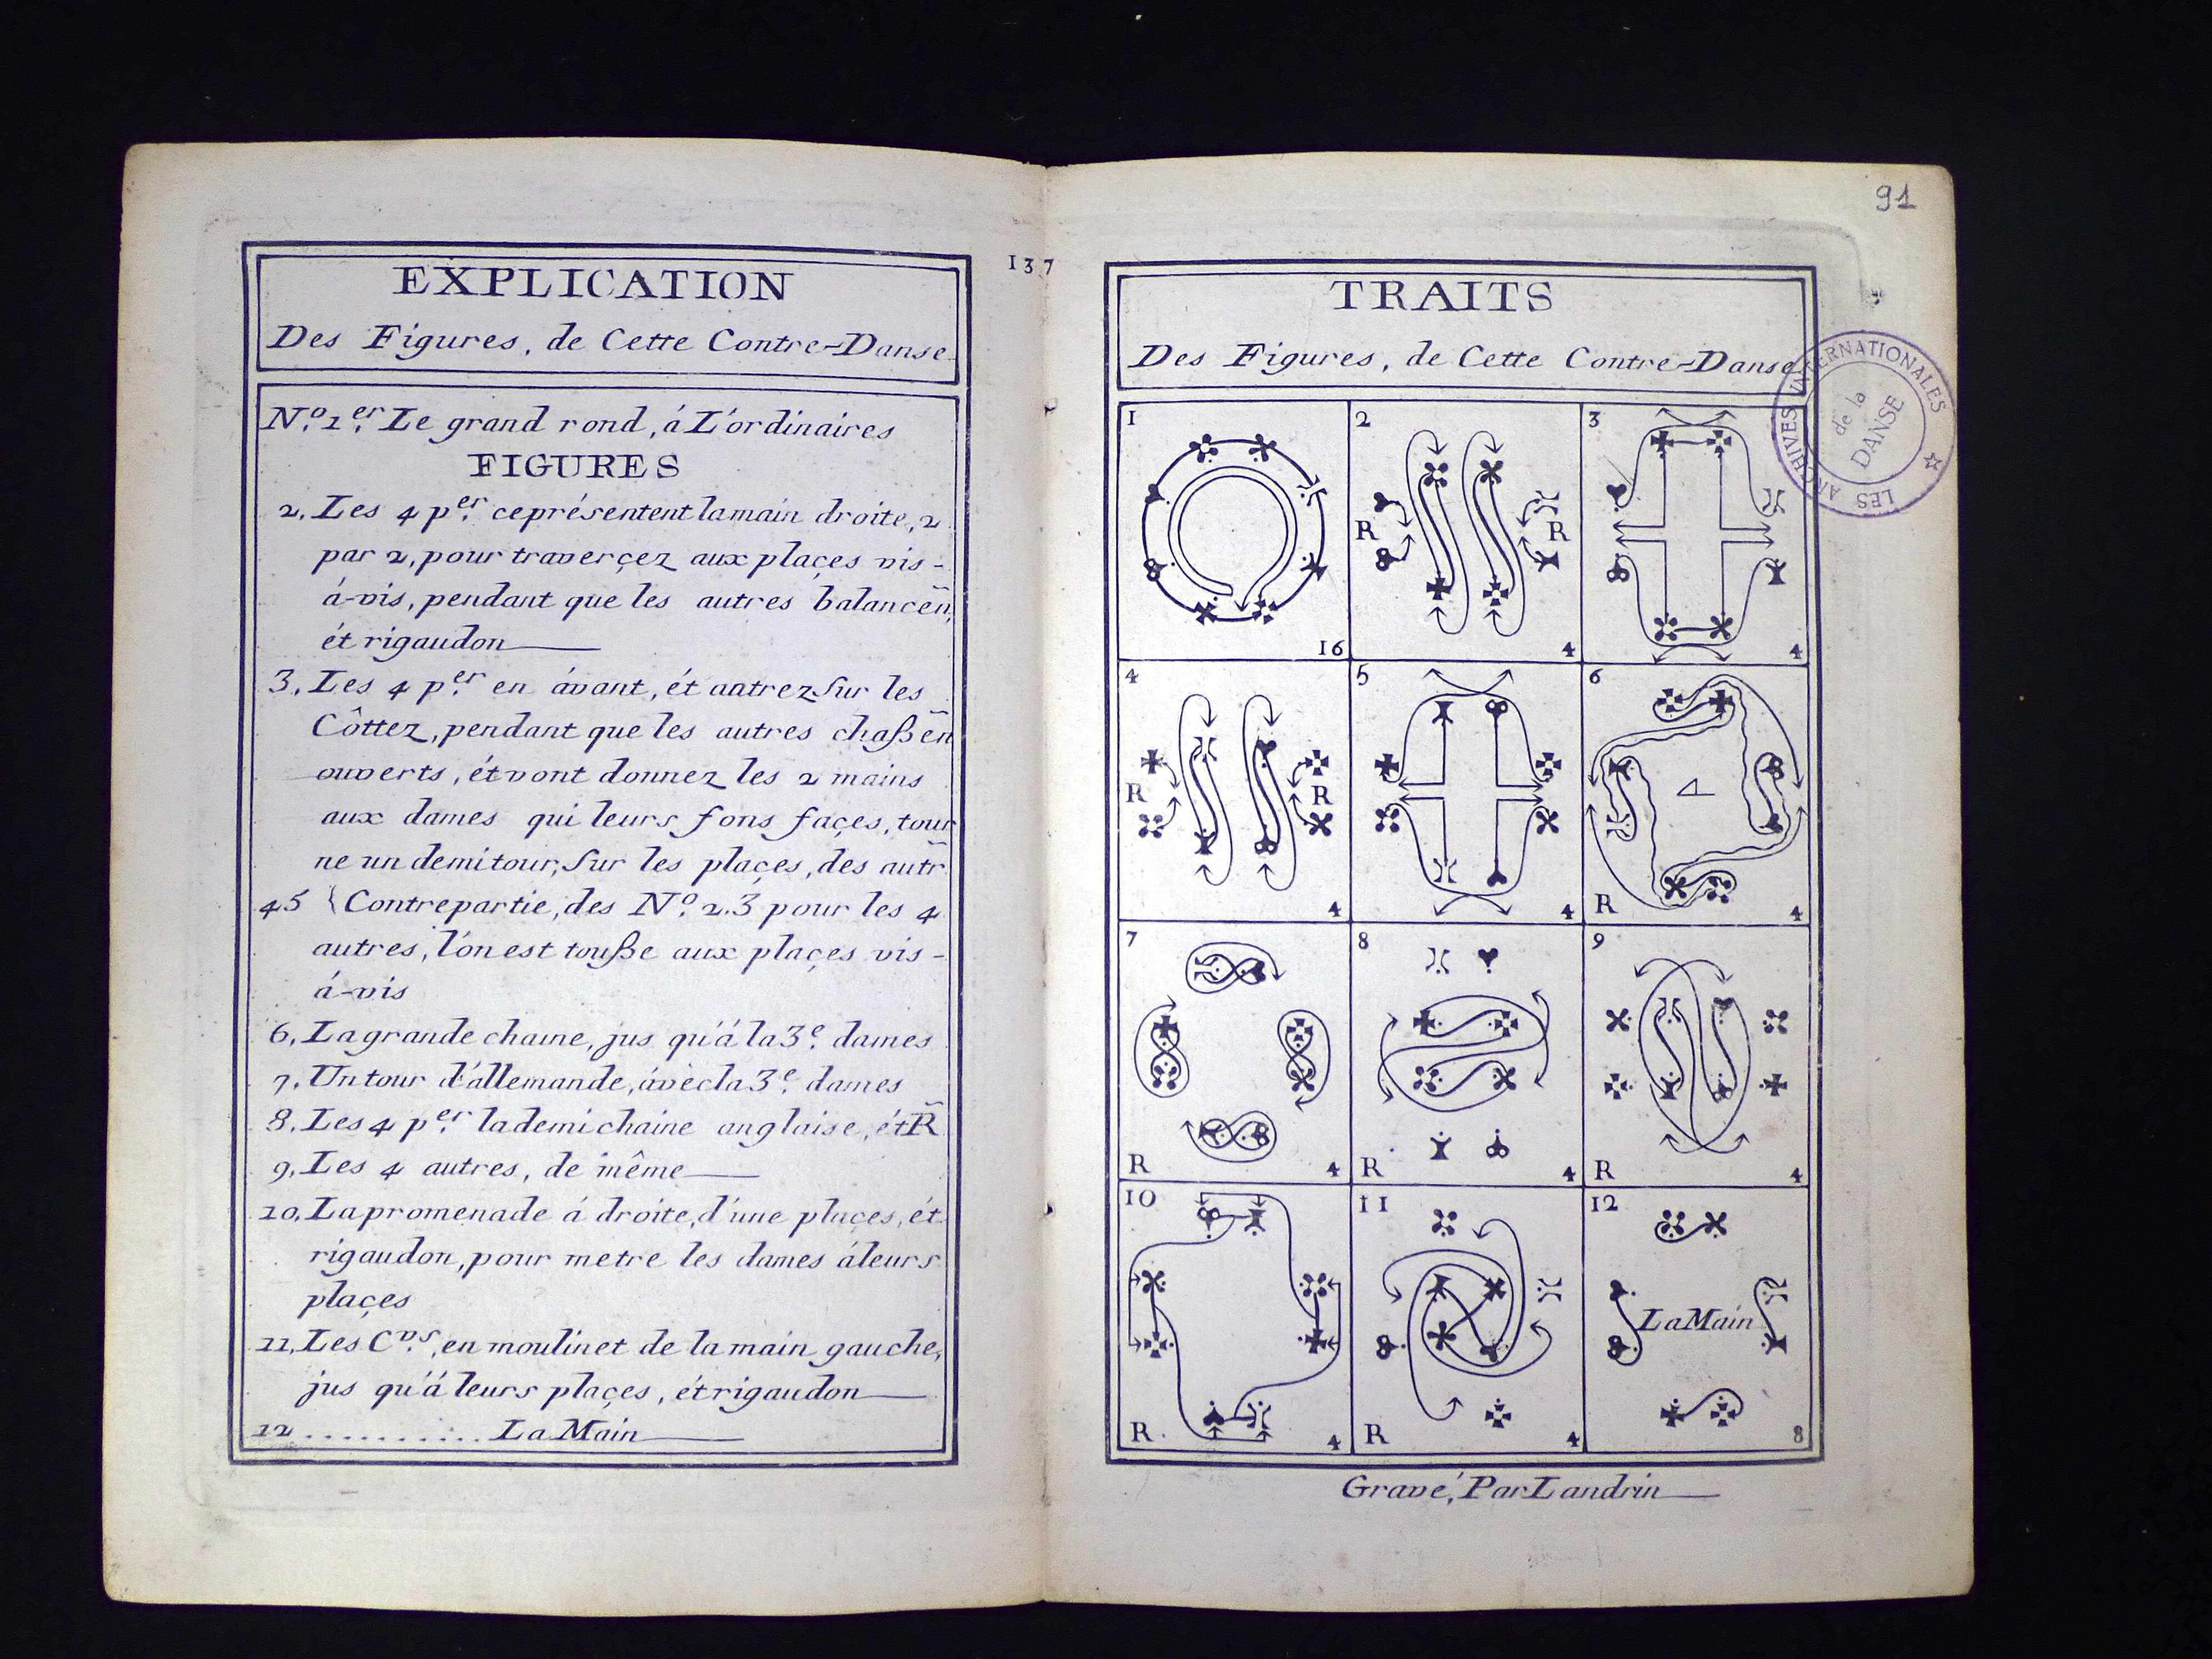 EXPLICATION
Des Figures, de Cette Contre-Danse.
N.º 1.er Le grand rond, á L'ordinaires
FIGURES
2, Les 4 p.er ceprésentent lamain droite, 2
par 2, pour traverçez aux plaçes vis-
á-vis, pendant que les autres balancen̄,
ét rigaudon
3, Les 4 p.er en ávant, ét antrez sur les
Côttez, pendant que les autres chaßen̄
ouverts, ét vont donnez les 2 mains
aux dames qui leurs fons façes, tour
ne un demi tour, sur les plaçes, des autr̄
4 5 { Contrepartie, des N.º 2.3 pour les 4
autres, l'on est touße aux plaçes vis-
á-vis
6, La grande chaine, jus qu'á la 3.e dames
7, Un tour d'allemande, ávècla 3.e dames
8, Les 4 p.er la demi chaine anglaise, ét R̄
9, Les 4 autres, de même
10, La promenade á droite, d'une plaçes, ét
rigaudon, pour metre les dames áleurs
plaçes
11, Les C.vrs, en moulinet de la main gauche,
jus qu'á leurs plaçes, ét rigaudon
12 .......... La Main
137
91
TRAITS
Des Figures, de Cette Contre-Danse
LES ARCHIVES INTERNATIONALES
de la
DANSE
1 2 3
R R
16 4 4
4 5 6
R R
R
4 4 4
7 8 9
R 4 R 4 R 4
10 11 12
La Main
R. 4 R 4 8
Gravé, Par Landrin